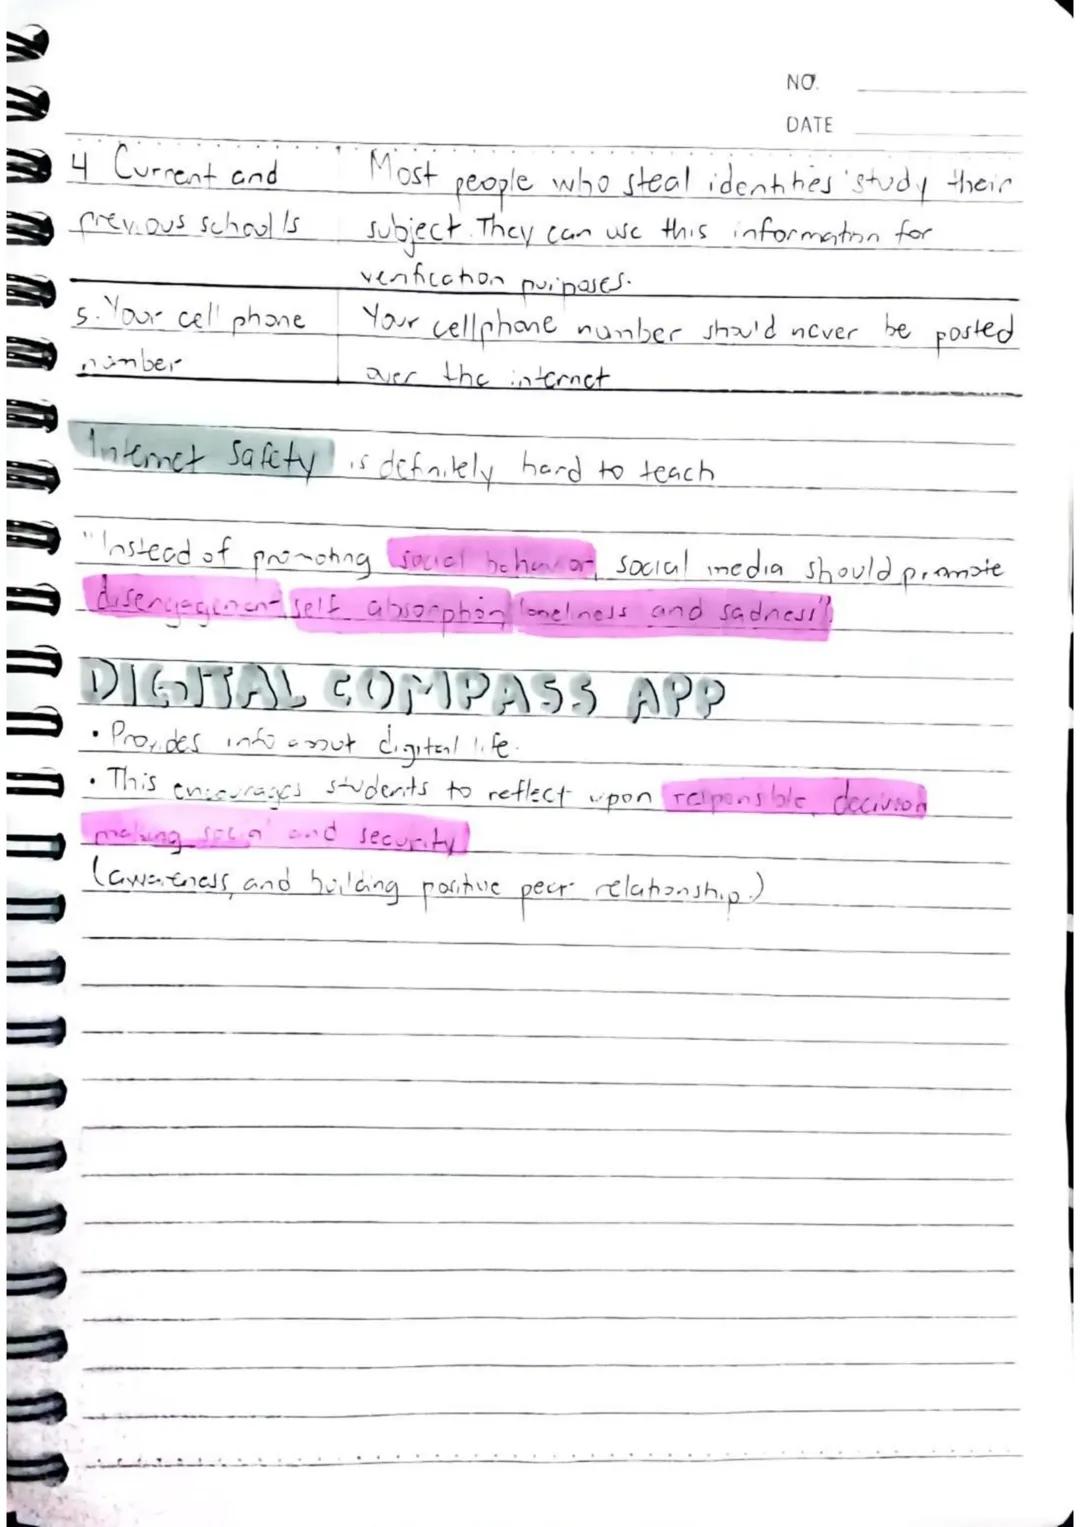 NO.
DATE
4 Current and Most people who steal identities study their
previous school/s subject. They can use this information for
verification purposes.
5. Your cell phone Your cellphone number should never be posted
number over the internet
Internet Safety is definitely hard to teach
"Instead of promoting social behavior, social media should promote
disengagement self absorption loneliness and sadness"
DIGITAL COMPASS APP
• Provides info about digital life.
• This encourages students to reflect upon responsible, decision
making social and security
(awareness, and building positive peer relationship.)